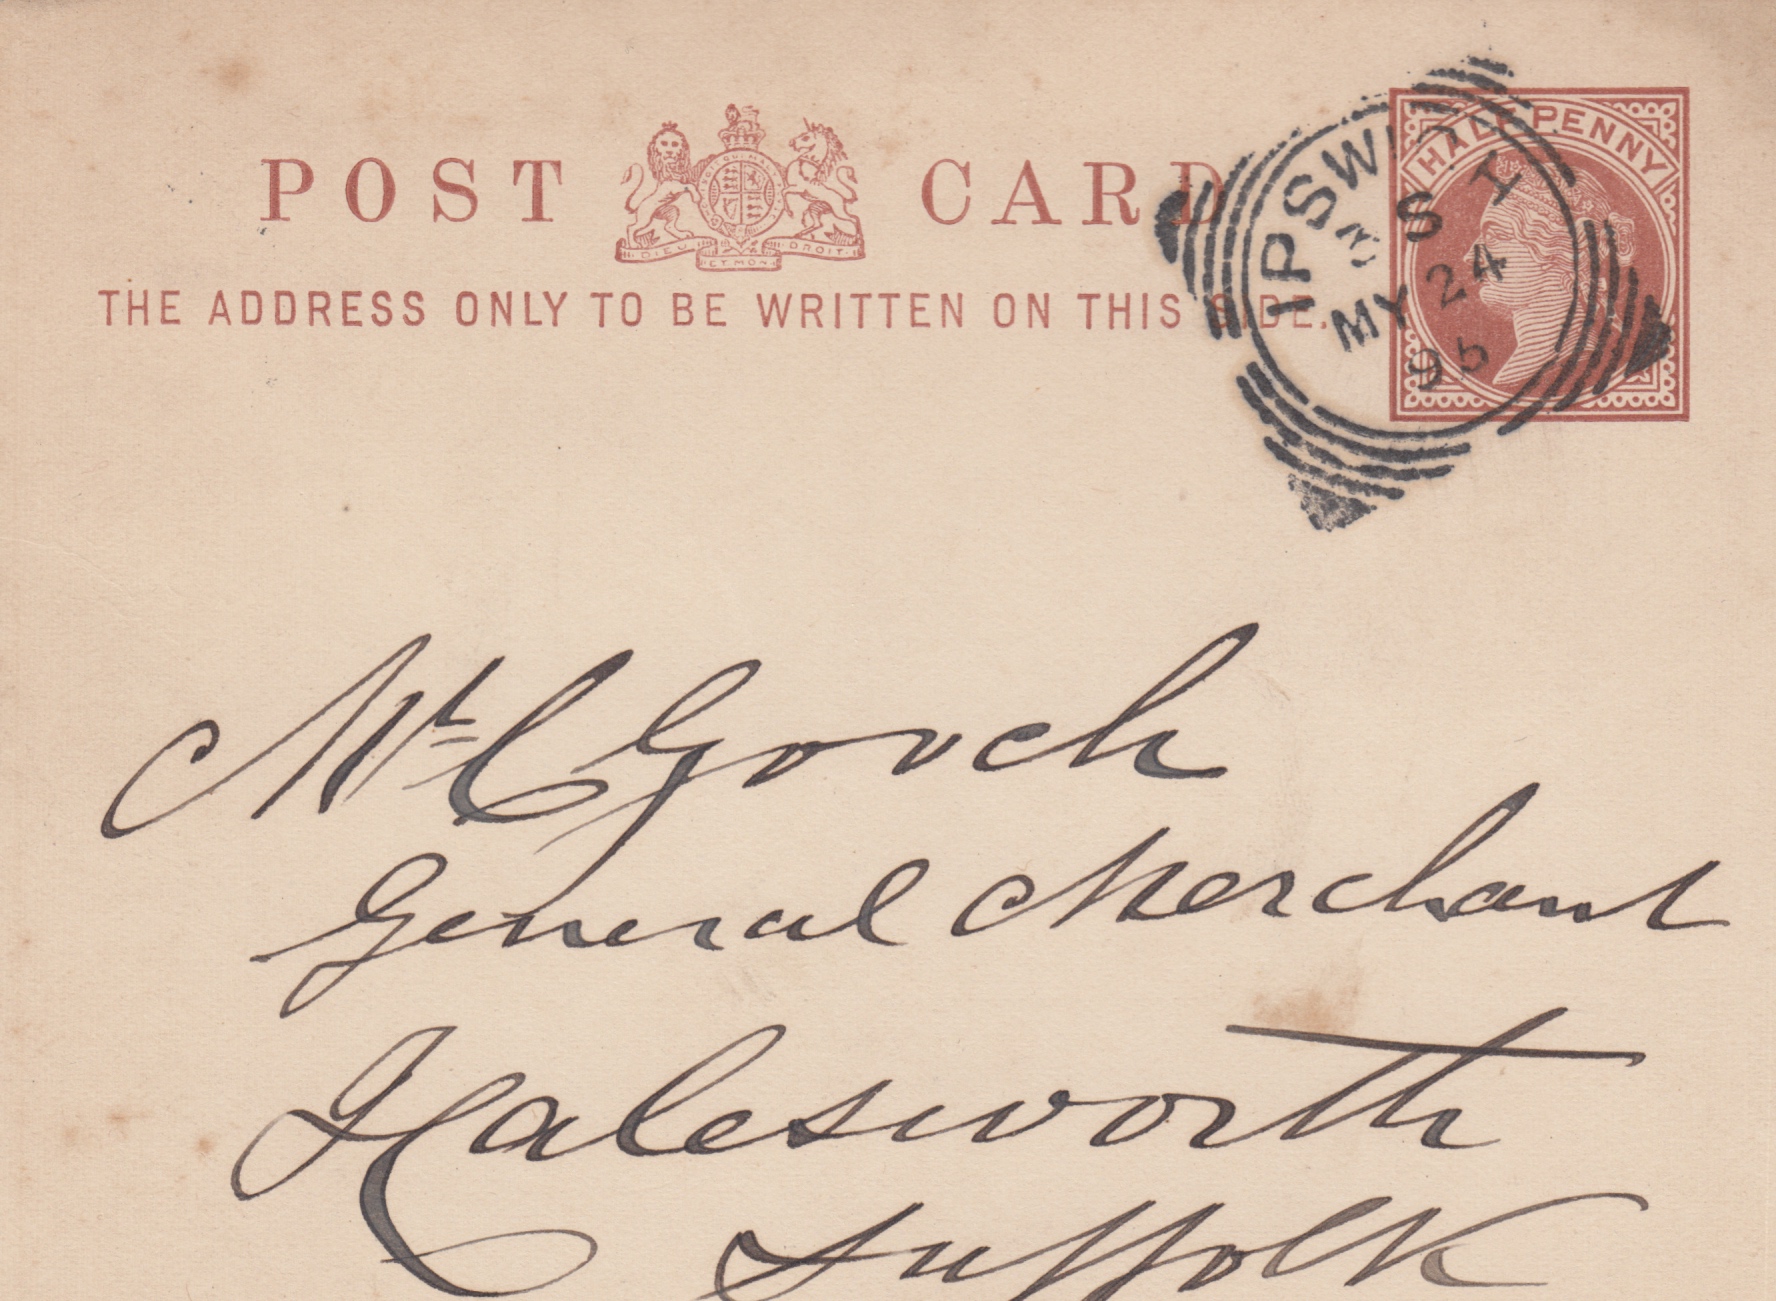 POST CARD
DIEU ET MON DROIT
THE ADDRESS ONLY TO BE WRITTEN ON THIS SIDE.
HALFPENNY
IPSWICH
S
MY 24
95
Mr C Gooch
General Merchant
Halesworth
Suffolk